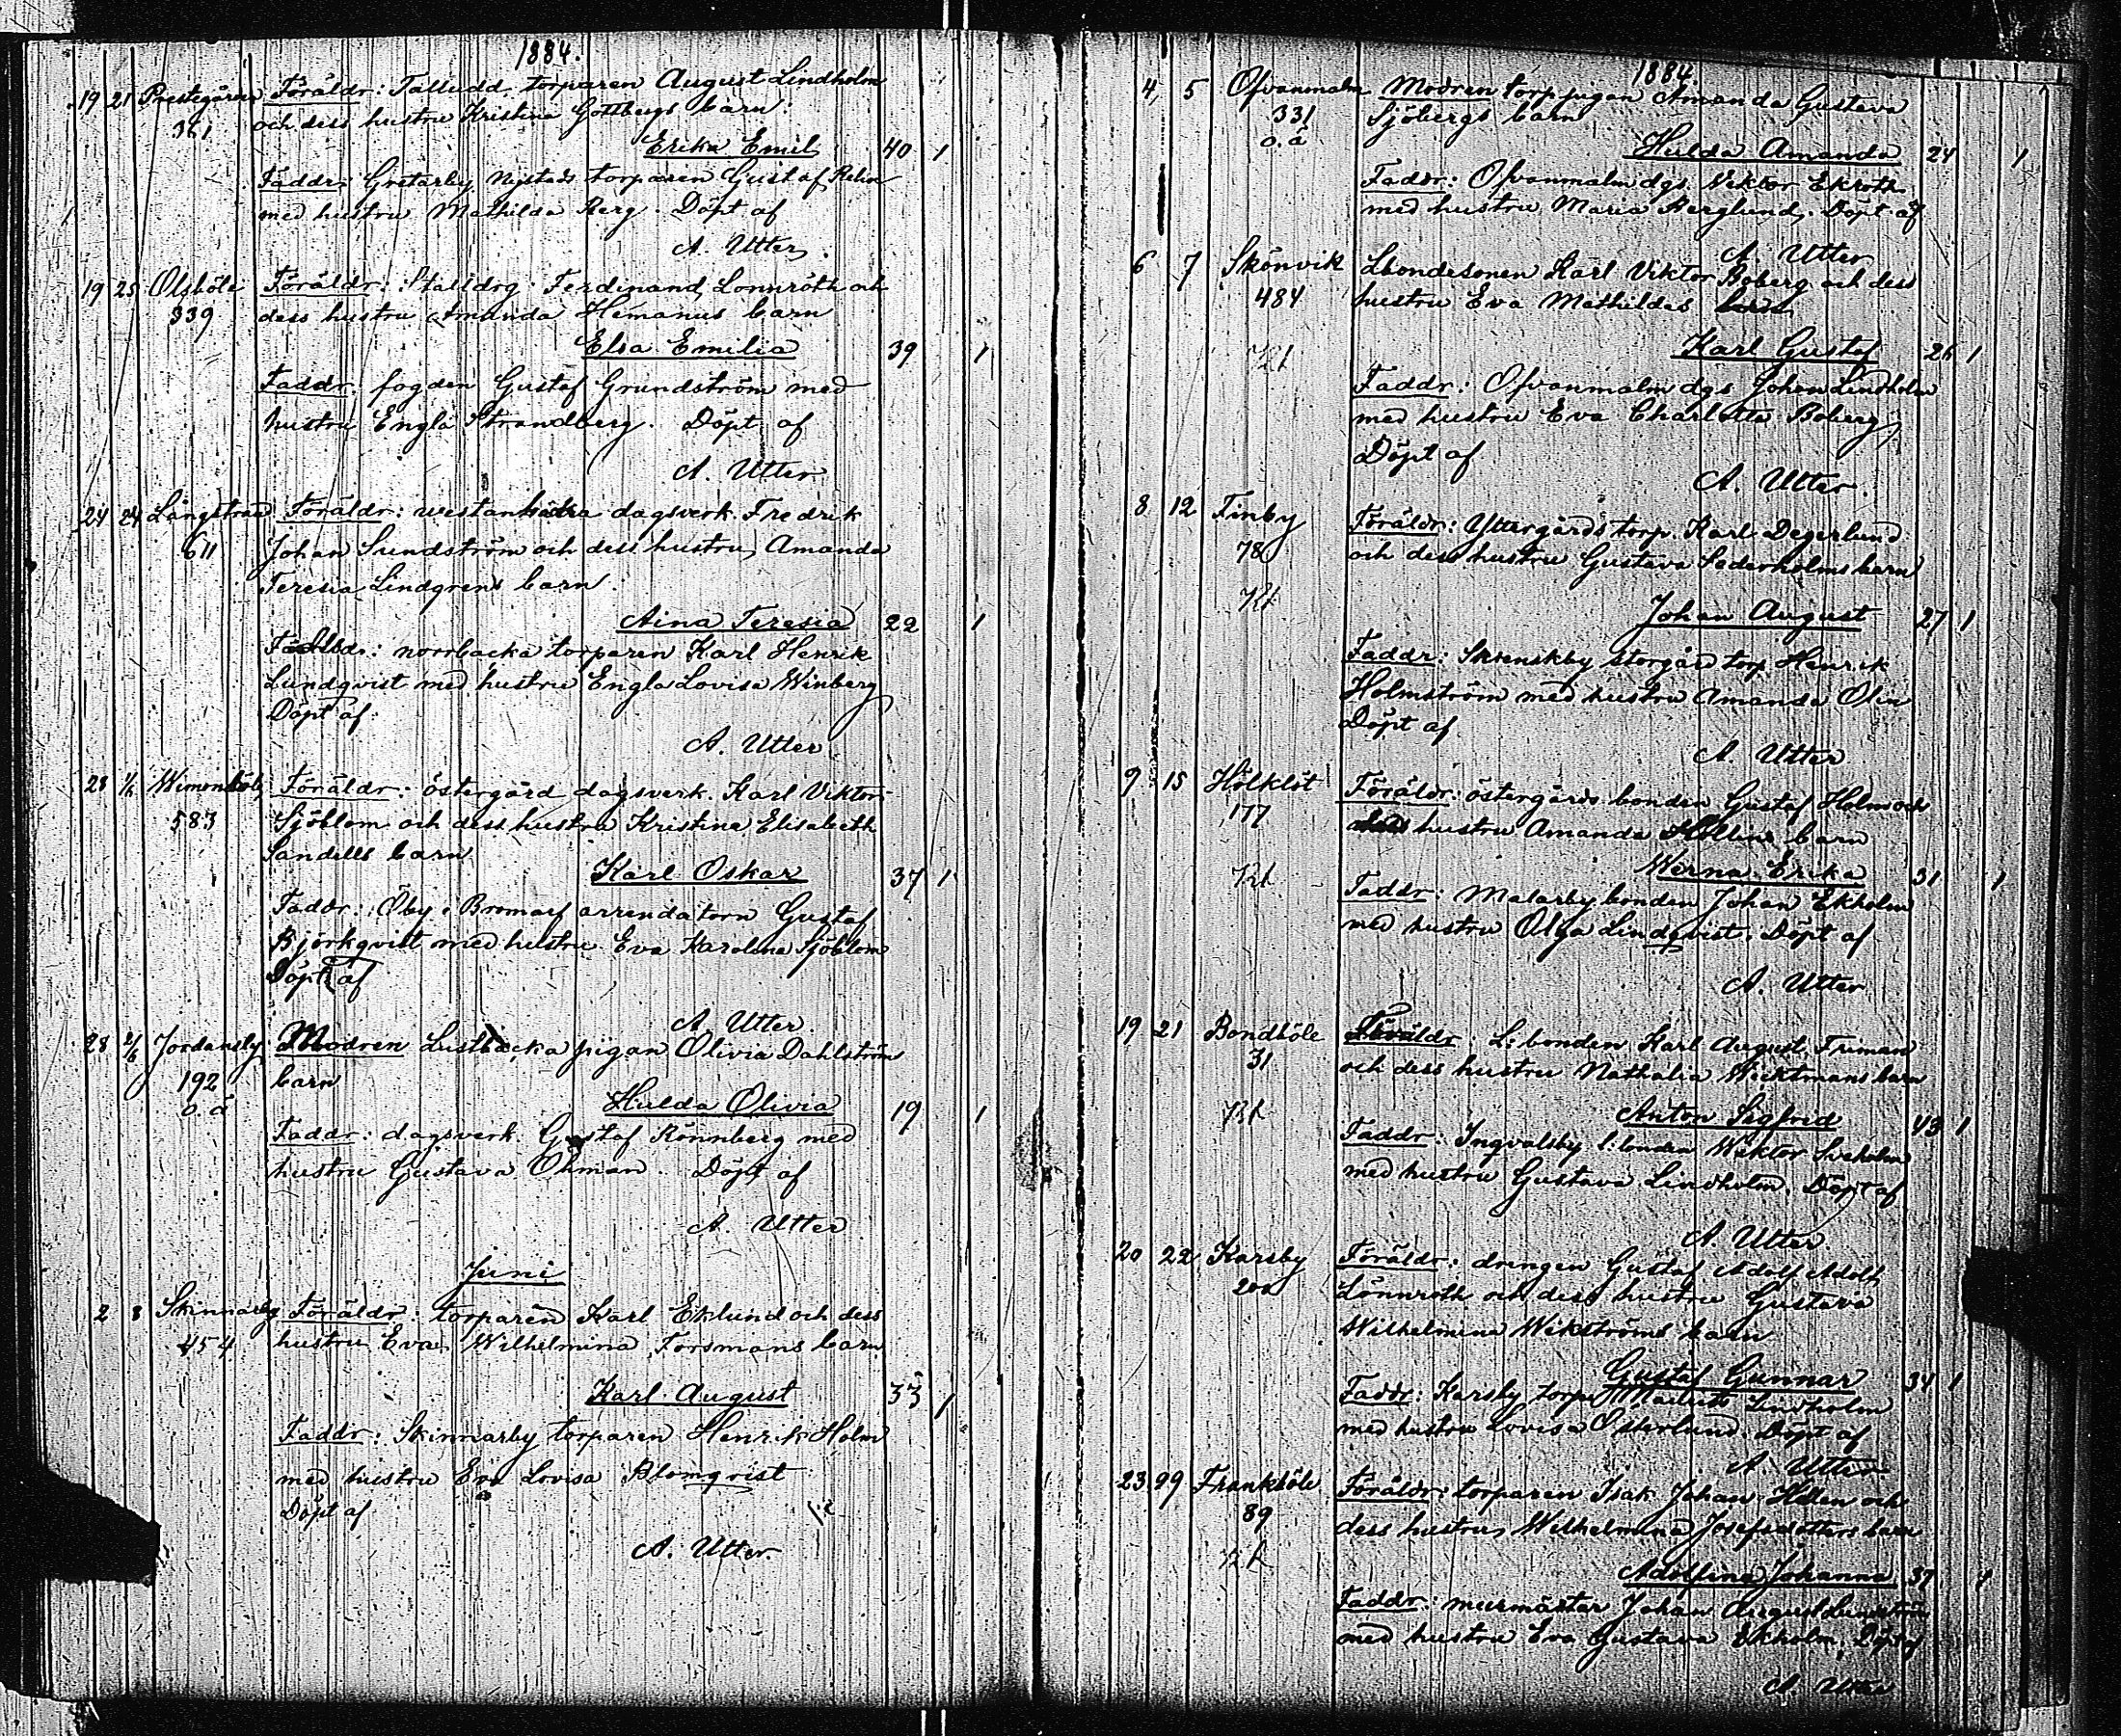 1884.
19 21 Prestegården Föräldr: Talludd torparen August Lindholm
361 och dess hustru Kristina Gottbergs barn:
Erika Emil 40 1
Faddr: Gretarby Nystads torparen Gustaf
med hustru Mathilda Berg. Döpt af
A. Utter.
19 25 Olsböle Föräldr: Stalldrg Ferdinand Lönnroth och
339 dess hustru Amanda Hemanus barn
Elsa Emilia 39 1
Faddr. fogden Gustaf Grundström med
hustru Engla Strandberg. Döpt af
A. Utter
24 24 Långstrand Föräldr: westanbäcka dagsverk. Fredrik
611 Johan Sundström och dess hustru Amanda
Teresia Lindgrens barn.
Aina Teresia 22 1
Faddr: norrbacka torparen Karl Henrik
Lundqvist med hustru Engla Lovisa Winberg
Döpt af
A. Utter
28 1/6 Wimonböle Föräldr: östergård dagsverk. Karl Viktor
583 Sjöblom och dess hustru Kristina Elisabeth
Sandells barn
Karl Oskar 37 1
Faddr: Öby i Bromarf arrendatorn Gustaf
Björkqvist med hustru Eva Karolina Sjöblom
Döpt af
A. Utter
28 2/6 Jordansby Modren Lustbacka pigan Olivia Dahlström
192 barn
o. ä
Hulda Olivia 19 1
Faddr: dagsverk. Gustaf Rönnberg med
hustru Gustava Öhman. Döpt af
A. Utter
Juni
2 8 Skinnarby Föräldr: torparen Karl Eklund och dess
454 hustru Eva Wilhelmina Forsmans barn
Karl August 33 1
Faddr: Skinnarby torparen Henrik Holm
med hustru Eva Lovisa Blomqvist
Döpt af
A. Utter.
1884.
4 5 Ofvanmalm Modren torp pigan Amanda Gustava
331 Sjöbergs barn
o. ä
Hulda Amanda 24 1
Faddr: Ofvanmalm dgs. Viktor Ekroth
med hustru Maria Berglund. Döpt af
A. Utter
6 7 Skönvik Lbondesonen Karl Viktor Boberg och dess
484 hustru Eva Mathildas barn
Karl Gustaf 26 1
Faddr: Ofvanmalm dgs Johan Lindholm
med hustru Eva Charlotta Boberg
Döpt af
A. Utter.
8 12 Finby Föräldr: Yttergårds torp. Karl Degerlund
78 och dess hustru Gustava Söderholms barn
Johan August 27 1
Faddr: Skrenskby storgård torp Henrik
Holmström med hustru Amanda Olin
Döpt af
A. Utter
9 15 Hölklöt Föräldr: östergårds bonden Gustaf Holm och
177 dess hustru Amanda barn
Werna Erika 31 1
Faddr: Malarby bonden Johan Ekholm
med hustru Olga Lindqvist. Döpt af
A. Utter
19 21 Bondböle Föräldr: L: bonden Karl August Friman
31 och dess hustru Nathalia Wecktmans barn
Anton Sigfrid 43 1
Faddr: Ingvalsby l: bonden Wiktor
med hustru Gustava Lindholm. Döpt af
A. Utter.
20 22 Karsby Föräldr: drengen Gustaf Adolf Adolf
200 Lönnroth och dess hustru Gustava
Wilhelmina Wikströms barn
Gustaf Gunnar 34 1
Faddr: Karsby torp. Maurits Lindholm
med hustru Lovisa Österlund. Döpt af
A. Utter
23 29 Frankböle Föräldr: torparen Isak Johan Hellen och
89 dess hustru Wilhelmina Josefsdotters barn
Adolfina Johanna 37 1
Faddr: murmäster Johan August Lundström
med hustru Eva Gustava Ekholm. Döpt af
A. Utter